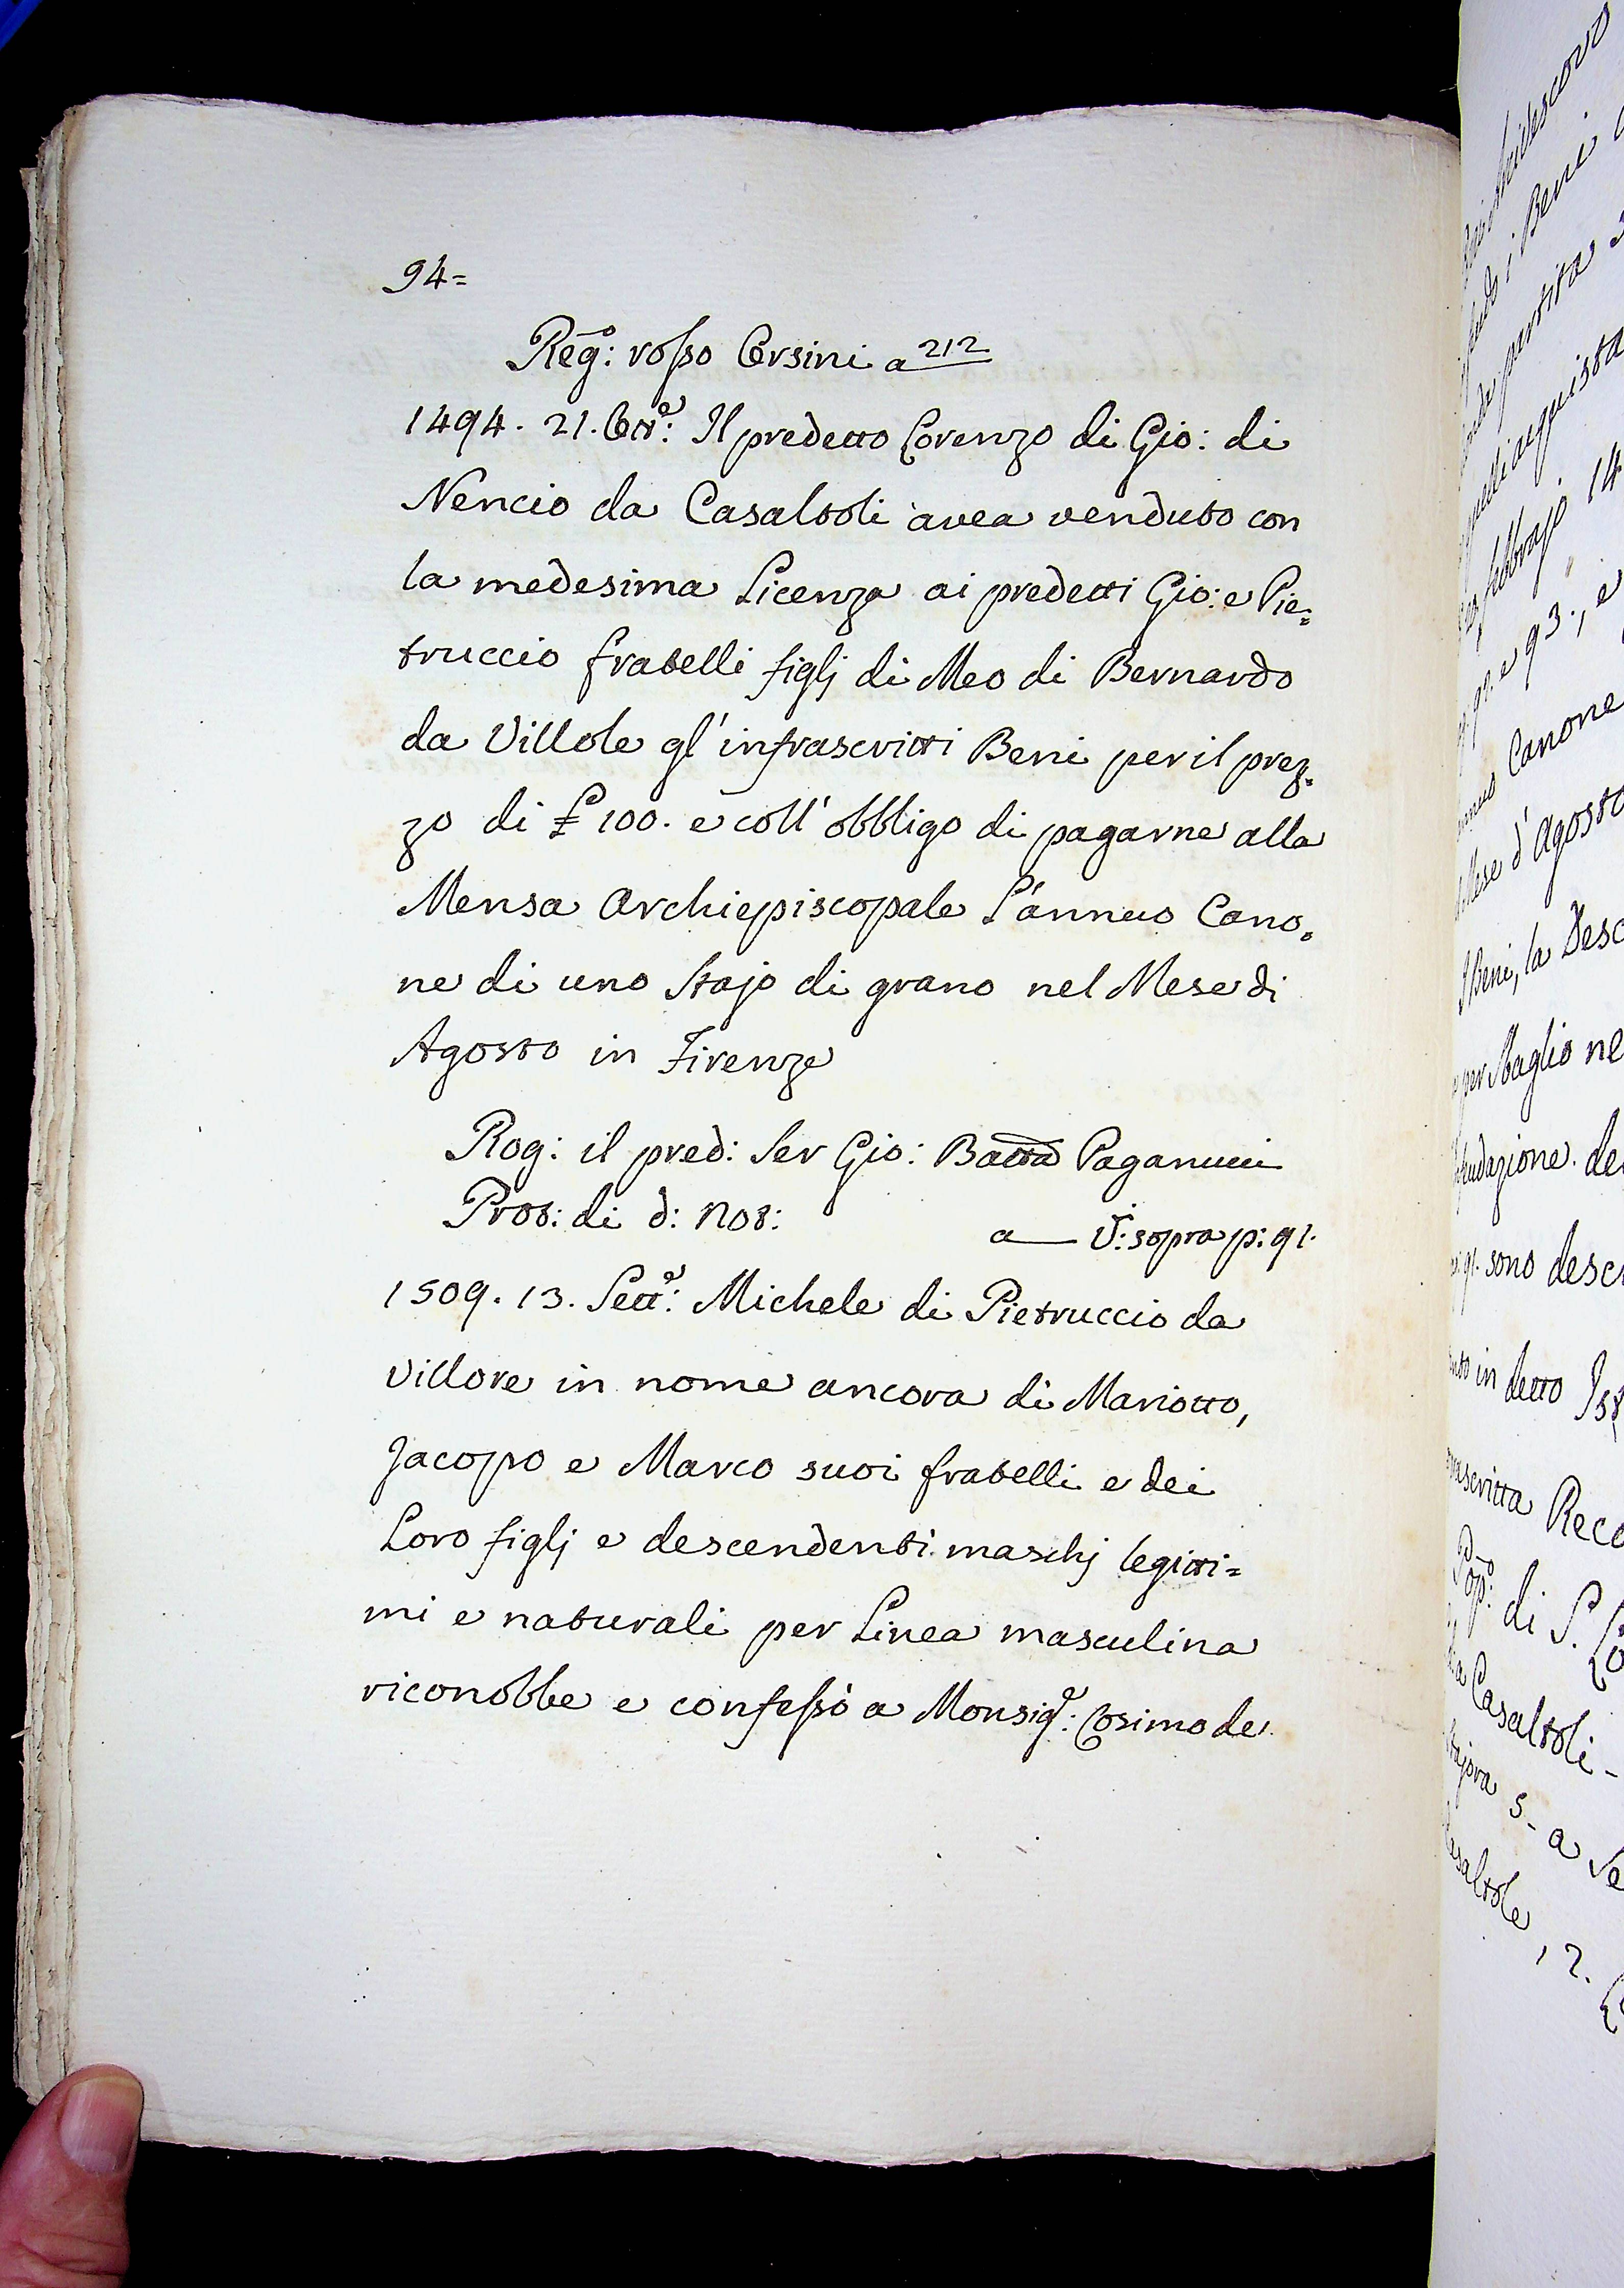 94=
Reg:º rosso Orsini a 212
1494. 21. Ott:e Il predetto Lorenzo di Gio: di
Nencio da Casaltoli avea venduto con
la medesima Licenza ai predetti Gio: e Pie=
truccio fratelli figlj di Meo di Bernardo
da Villole gl'infrascritti Beni per il prez=
zo di £ 100. e coll'obbligo di pagarne alla
Mensa Archiepiscopale l'annuo Cano=
ne di uno Stajo di grano nel Mese di
Agosto in Firenze
Rog: il pred: Ser Gio: Batta Paganucci
Prot: di d: Not: a — V: sopra p: 91.
1509. 13. Sett:e Michele di Pietruccio da
Villore in nome ancora di Mariotto,
Jacopo e Marco suoi fratelli e dei
Loro figlj e descendenti maschj legitti=
mi e naturali per Linea masculina
riconobbe e confessò a Monsig:e Cosimo de
i Beni
partita
acquista
febbrajo 14
e 93; e
Canone
Mese d'Agosto
Beni, la Desc
per Sbaglio ne
de
91. sono desc
in detto
Reco
Pop:º di S. Lo
Casaltoli -
Stajora 5 - a Se
12.